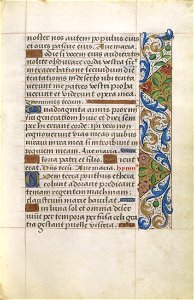 noster nos autem populus eius
et oues pascue eius. Aue maria.
Hodie si vocem eius
nolite obdurare corda vestra sicut
in exacerbatione secundum diem
temptationis in deserto vbi
me patres vestri
et viderunt opera mea
Dominus tecum.
Quadraginta annis proxi
mus fui generationi huic et
dixi semper hii errant corde ipsi vero non
cognouerunt vias meas quibus iuraui
in ira mea si introibunt in requiem
meam. Aue maria.
Gloria patri et filio. Sicut erat.
Dominus tecum. Aue maria. hymn
Quem terra ponthus ethera
colunt adorant predicant
trinam regentem machinam
claustrum marie baiulat.
Cui luna sol et omnia deser
uiunt per tempora perfusa celi gra
tia gestant puelle viscera.